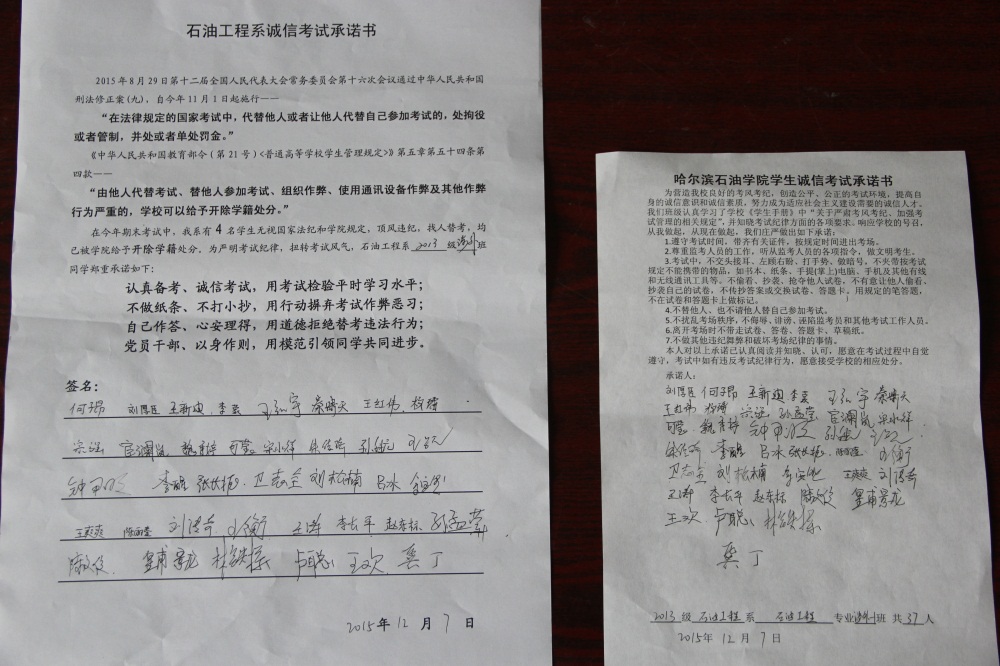 石油工程系诚信考试承诺书
2015年8月29日第十二届全国人民代表大会常务委员会第十六次会议通过中华人民共和国
刑法修正案(九)，自今年11月1日起施行——
“在法律规定的国家考试中，代替他人或者让他人代替自己参加考试的，处拘役
或者管制，并处或者单处罚金。”
《中华人民共和国教育部令(第21号)<普通高等学校学生管理规定>》第五章第五十四条第
四款——
“由他人代替考试、替他人参加考试、组织作弊、使用通讯设备作弊及其他作弊
行为严重的，学校可以给予开除学籍处分。”
在今年期末考试中，我系有4名学生无视国家法纪和学院规定，顶风违纪，找人替考，均
已被学院给予开除学籍处分。为严明考试纪律，扭转考试风气，石油工程系 2013 级 班
同学郑重承诺如下：
认真备考、诚信考试，用考试检验平时学习水平；
不做纸条、不打小抄，用行动摒弃考试作弊恶习；
自己作答、心安理得，用道德拒绝替考违法行为；
党员干部、以身作则，用模范引领同学共同进步。
签名：
王新迪 李 王弘宇 秦 天 王红伟
魏 宋小祥 孙
李 卫志 刘松楠 吕冰
王爽爽 刘清奇 王衡 王涛 李长平 赵东标 孙孟莹
卢聪 王欢 龚丁
2015年 12 月 7 日
哈尔滨石油学院学生诚信考试承诺书
为营造我校良好的考风考纪，创造公平、公正的考试环境，提高自
身的诚信意识和诚信素质，努力成为适应社会主义建设需要的诚信人才。
我们班级认真学习了学校《学生手册》中“关于严肃考风考纪、加强考
试管理的相关规定”，并知晓考试纪律方面的各项要求。响应学校的号召，
从我做起，从现在做起，我们庄严做出如下承诺：
1.遵守考试时间，带齐有关证件，按规定时间进出考场。
2.尊重监考人员的工作，听从监考人员的各项指令，做文明考生。
3.考试中，不交头接耳、左顾右盼、打手势、做暗号，不夹带按考试
规定不能携带的物品，如书本、纸条、手提(掌上)电脑、手机及其他有线
和无线通讯工具等。不偷看、抄袭、抢夺他人试卷，不有意让他人偷看、
抄袭自己的试卷，不传抄答案或交换试卷、答题卡，用规定的笔答题，
不在试卷和答题卡上做标记。
4.不替他人、也不请他人替自己参加考试。
5.不扰乱考场秩序，不侮辱、诽谤、诬陷监考员和其他考试工作人员。
6.离开考场时不带走试卷、答卷、答题卡、草稿纸。
7.不做其他违纪舞弊和破坏考场纪律的事情。
本人对以上承诺已认真阅读并知晓、认可，愿意在考试过程中自觉
遵守，考试中如有违反考试纪律行为，愿意接受学校的相应处分。
承诺人：
王新迪 李 王弘宇 秦 天
王红伟 孙孟莹 宋小祥
魏 孙
李 吕冰 王衡
卫志 刘松楠 王爽爽 刘清奇
王涛 李长平 赵东标
王欢 卢聪
龚丁
2013 级 石油工程 系 石油工程 专业 班 共 37 人
2015年 12 月 7 日